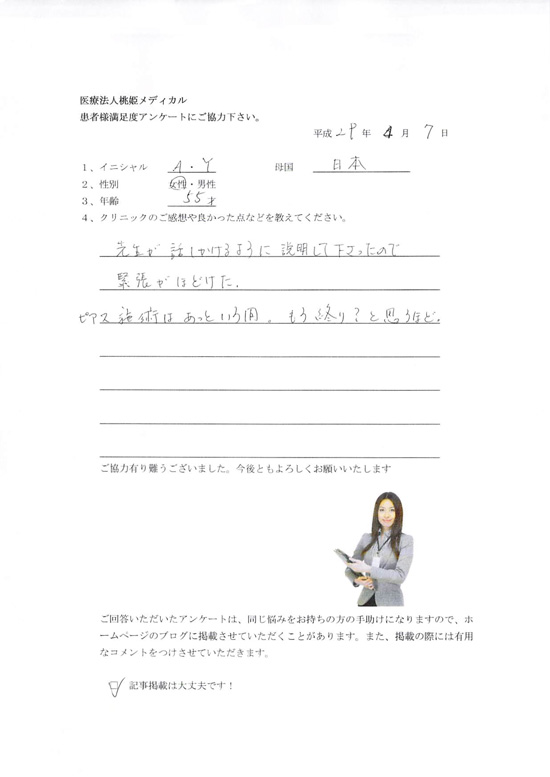 医療法人桃姫メディカル
患者様満足度アンケートにご協力下さい。
平成 29 年 4 月 7 日
1、イニシャル A・Y 母国 日本
2、性別 女性・男性
3、年齢 55才
4、クリニックのご感想や良かった点などを教えてください。
先生が話しかけるように説明して下さったので
緊張がほどけた。
ピアス施術はあっという間。もう終り?と思うほど。
ご協力有り難うございました。今後ともよろしくお願いいたします
ご回答いただいたアンケートは、同じ悩みをお持ちの方の手助けになりますので、ホ
ームページのブログに掲載させていただくことがあります。また、掲載の際には有用
なコメントをつけさせていただきます。
☑ 記事掲載は大丈夫です!